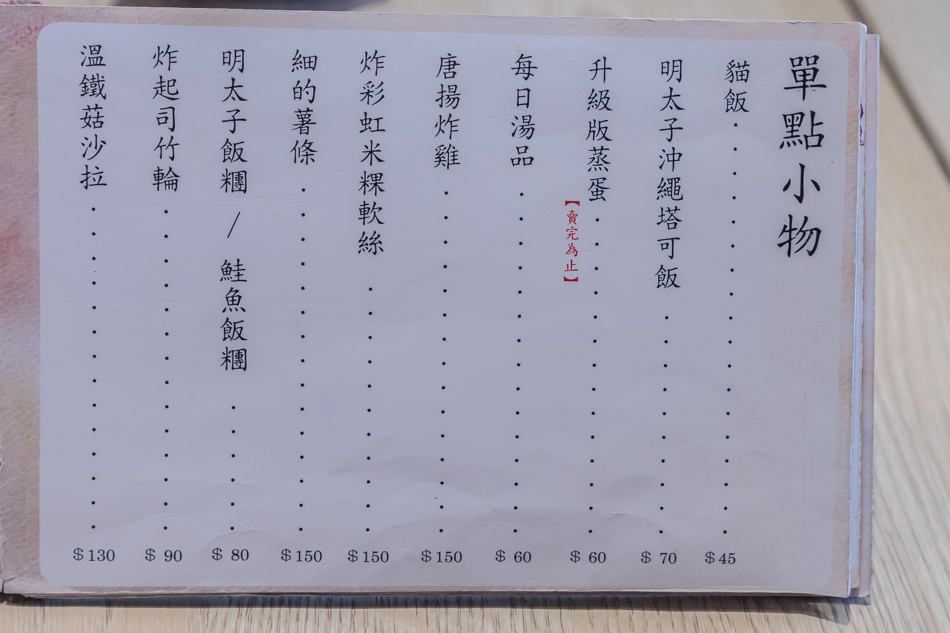 單點小物
貓飯 $45
明太子沖繩塔可飯 $70
升級版蒸蛋 $60
【賣完為止】
每日湯品 $60
唐揚炸雞 $150
炸彩虹米粿軟絲 $150
細的薯條 $150
明太子飯糰 / 鮭魚飯糰 $80
炸起司竹輪 $90
溫鐵菇沙拉 $130